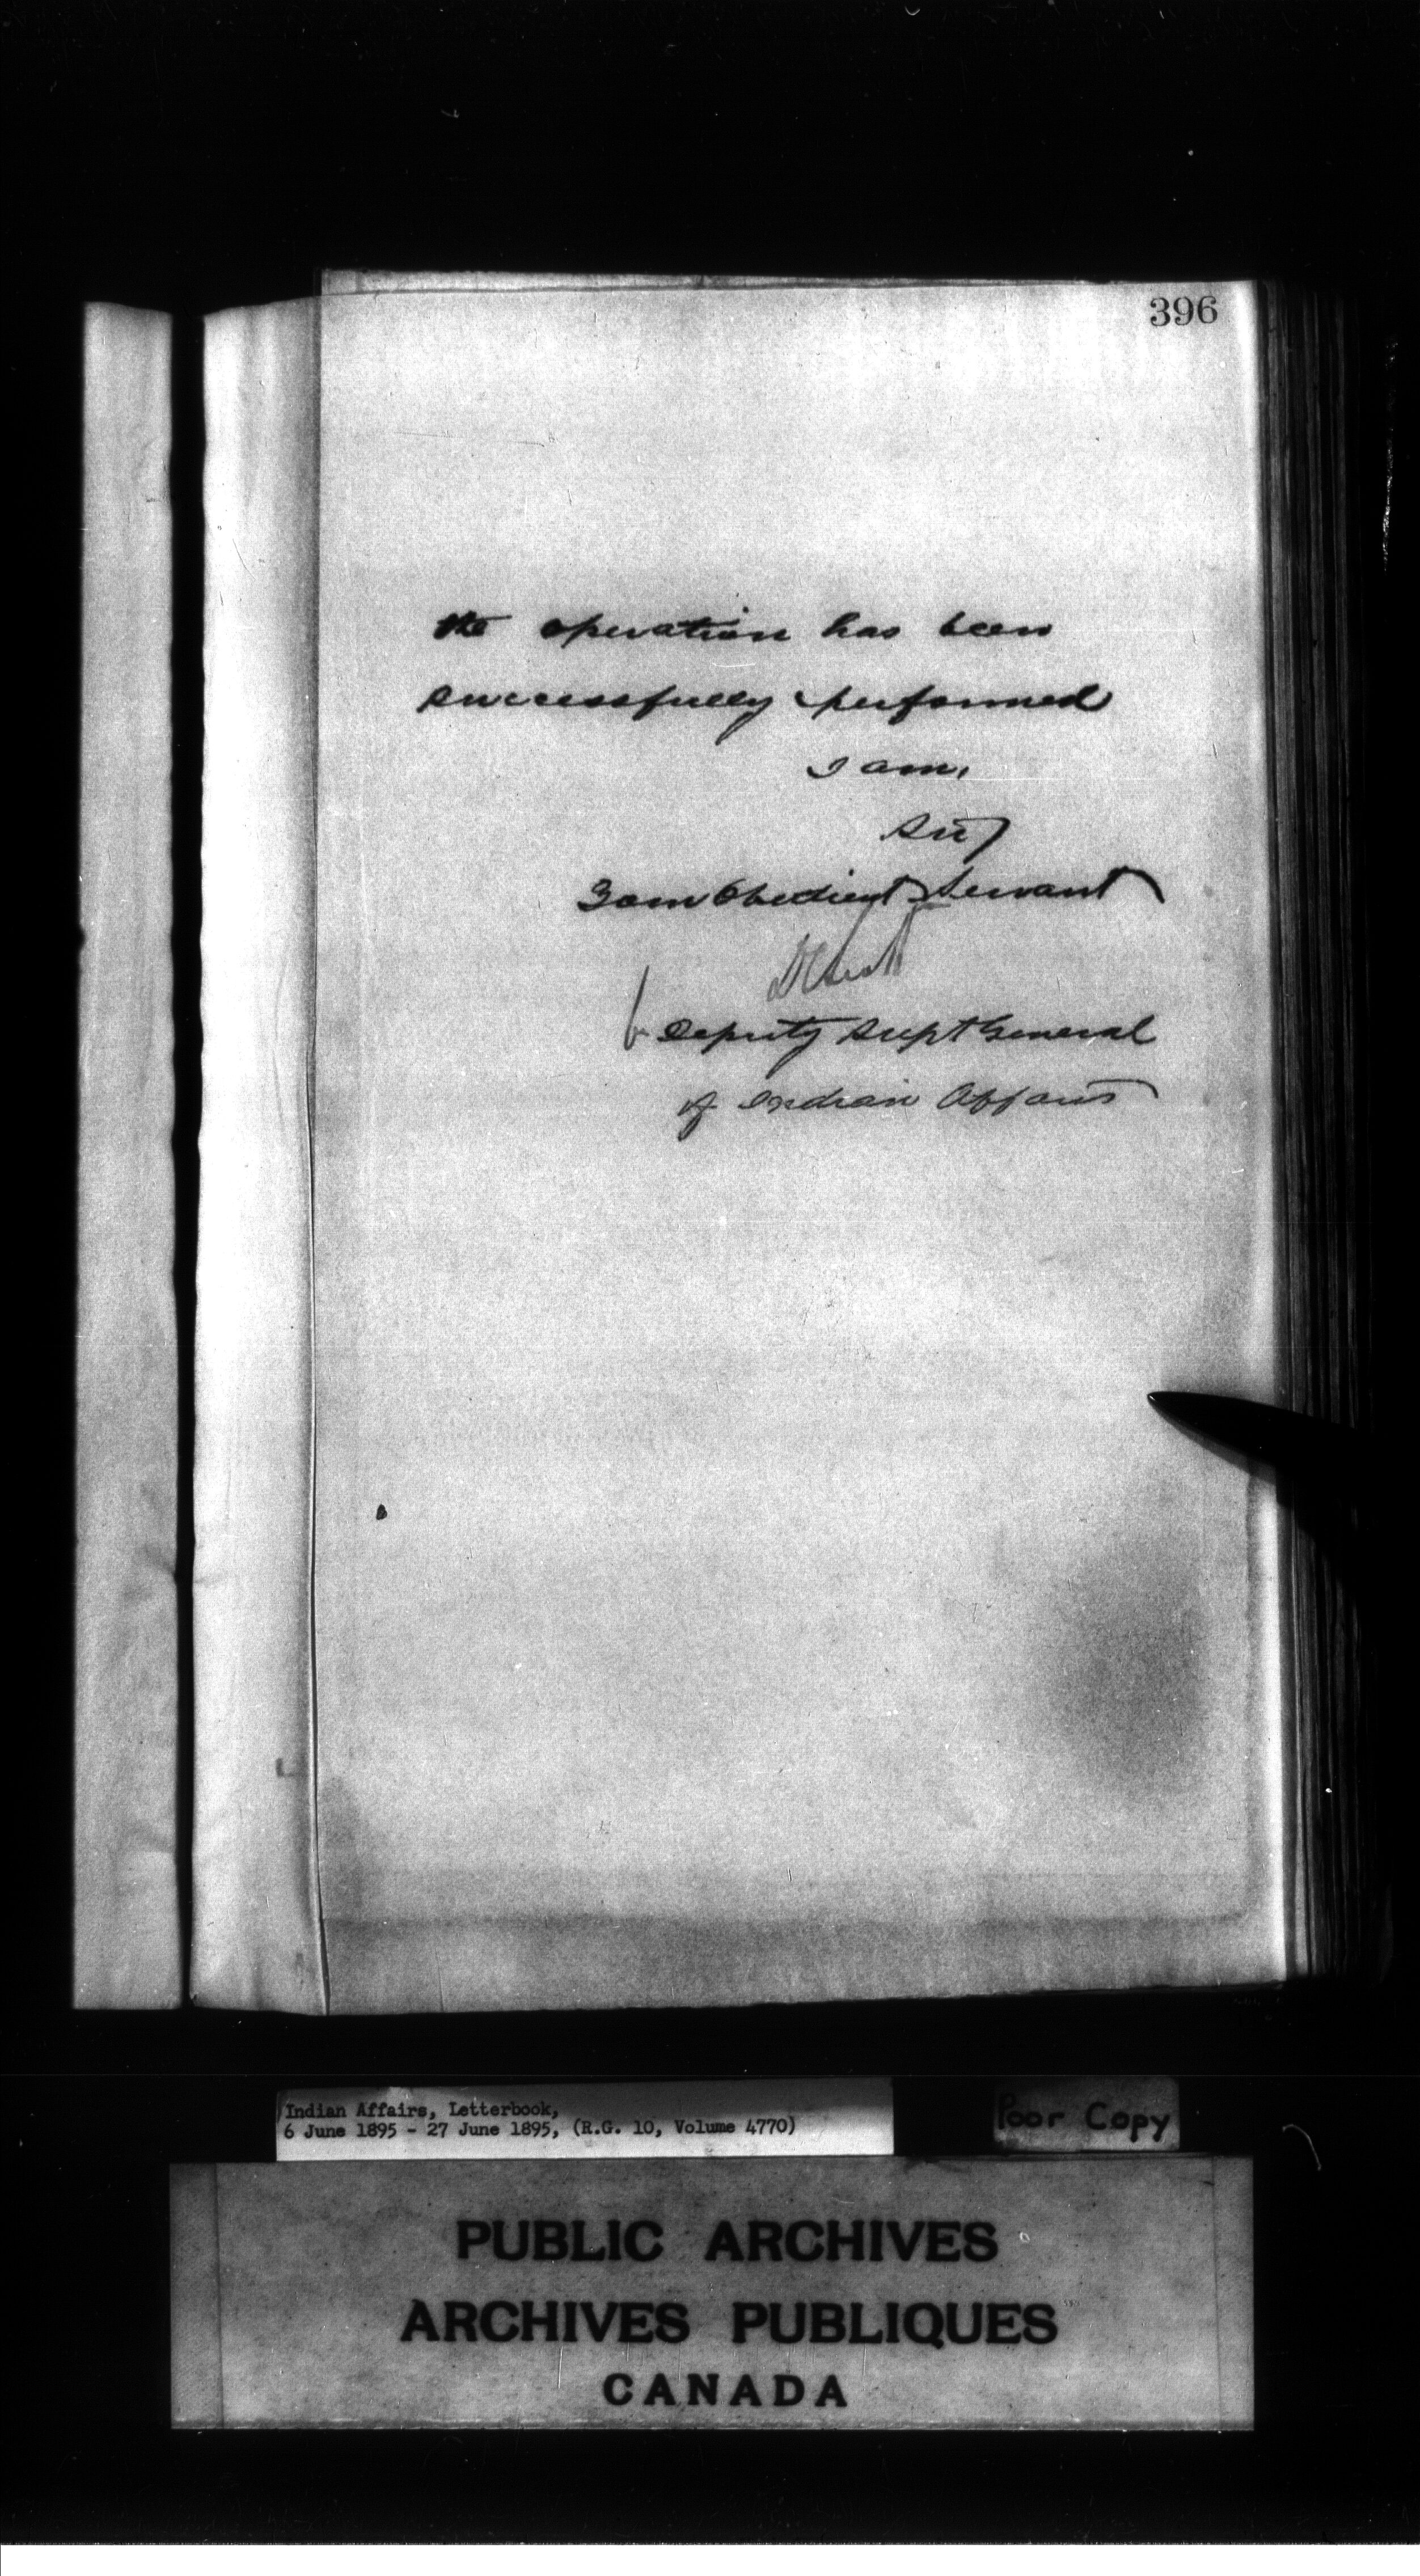 396
the operation has been
successfully performed
I am,
Sir,
Your Obedient Servant
Deputy Supt General
of Indian Affairs
Indian Affairs, Letterbook,
6 June 1895 - 27 June 1895, (R.G. 10, Volume 4770)
Poor Copy
PUBLIC ARCHIVES
ARCHIVES PUBLIQUES
CANADA